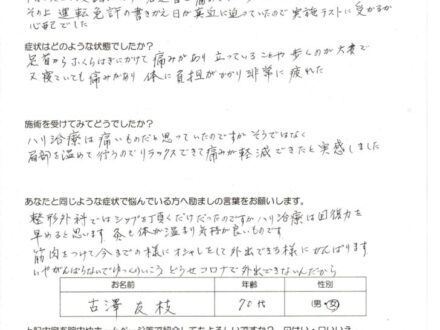 その上 運転免許の書きかえ日が真近に迫っていたので実施テストに受かるか
心配でした
症状はどのような状態でしたか？
足首からふくらはぎにかけて痛みがあり 立っていることや歩くのが大変で
又寝ていても痛みがあり 体に負担がかかり非常に疲れた
施術を受けてみてどうでしたか？
ハリ治療は痛いものだと思っていたのですが そうではなく
局部を温めて行うのでリラックスできて痛みが軽減できたと実感しました
あなたと同じような症状で悩んでいる方へ励ましの言葉をお願いします。
整形外科ではシップを頂くだけだったのですがハリ治療は回復力を
早めると思います 灸も体が温まり気持が良いものです
筋肉をつけて今までの様にオシャレをして外出できる様にがんばります
いやがんばらないでゆっくりいこう どうせコロナで外出できないんだから
お名前 年齢 性別
古澤 友枝 70代 (男・女)